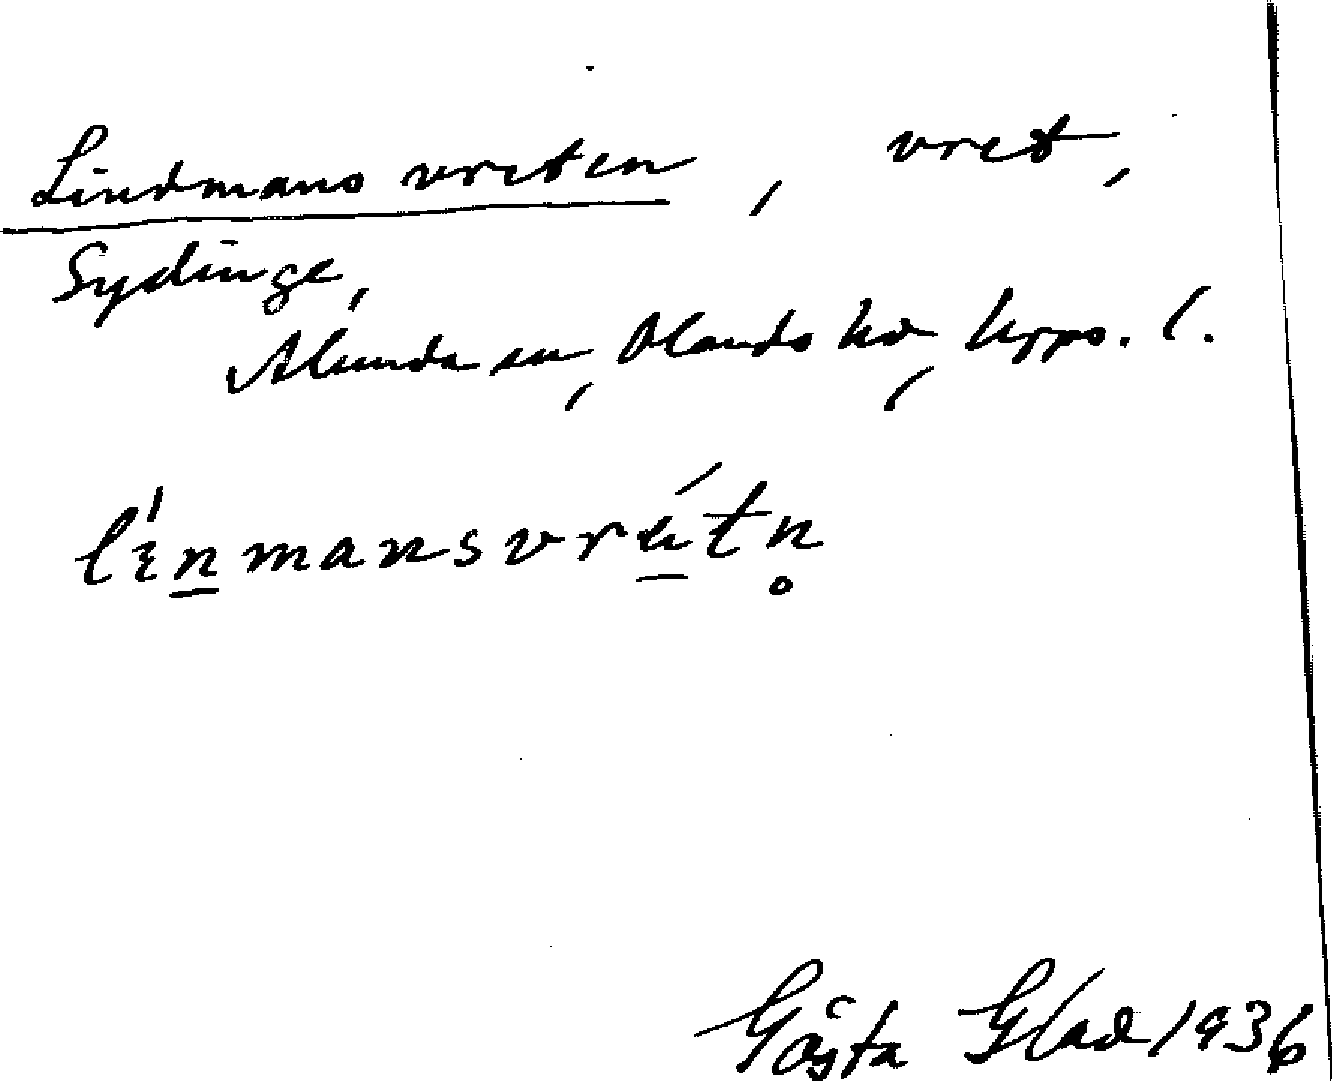 Lindmansvreten, vret,
Sydinge,
Alunda sn, Olands hd, Upps. l.
Gösta Glad 1936